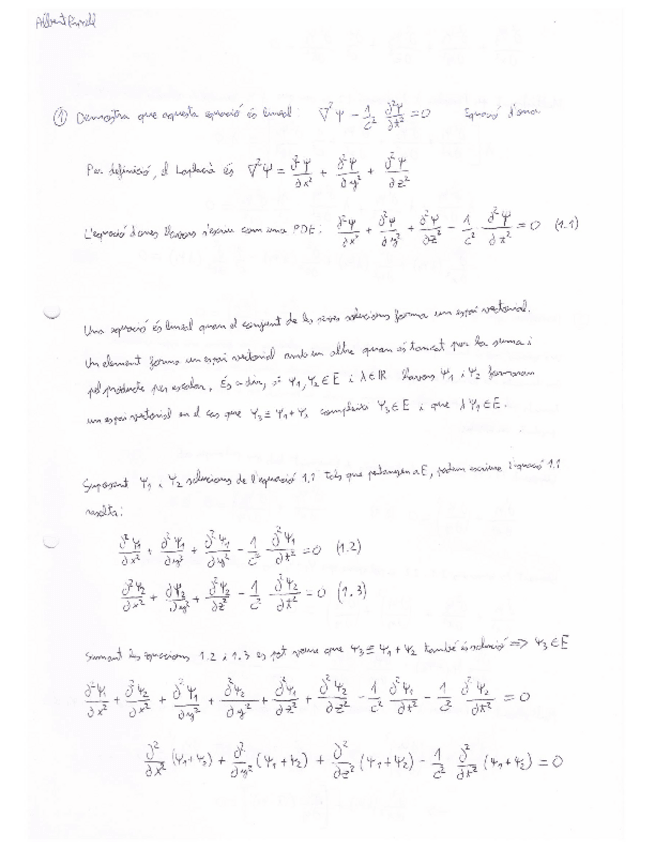 Albert
① Demostra que aquesta equació és lineal: ∇²Ψ − 1/c² ∂²Ψ/∂t² = 0 Equació d'ona
Per definició, el Laplacià és ∇²Ψ = ∂²Ψ/∂x² + ∂²Ψ/∂y² + ∂²Ψ/∂z²
L'equació d'ones llavors s'escriu com una PDE: ∂²Ψ/∂x² + ∂²Ψ/∂y² + ∂²Ψ/∂z² − 1/c² ∂²Ψ/∂t² = 0 (1.1)
Una equació és lineal quan el conjunt de les seves solucions forma un espai vectorial.
Un element forma un espai vectorial amb un altre quan és tancat per la suma i
pel producte per escalar, és a dir, si Ψ₁, Ψ₂ ∈ E i λ ∈ ℝ llavors Ψ₁ i Ψ₂ formaran
un espai vectorial en el cas que Ψ₃ ≡ Ψ₁ + Ψ₂ compleixi Ψ₃ ∈ E i que λΨ₁ ∈ E.
Suposant Ψ₁ i Ψ₂ solucions de l'equació 1.1 tals que pertanyen a E, podem escriure l'equació 1.1
resolta:
∂²Ψ₁/∂x² + ∂²Ψ₁/∂y² + ∂²Ψ₁/∂y² − 1/c² ∂²Ψ₁/∂t² = 0 (1.2)
∂²Ψ₂/∂x² + ∂Ψ₂/∂y² + ∂²Ψ₂/∂z² − 1/c² ∂²Ψ₂/∂t² = 0 (1.3)
Sumant les equacions 1.2 i 1.3 es pot veure que Ψ₃ ≡ Ψ₁ + Ψ₂ també és solució ⇒ Ψ₃ ∈ E
∂²Ψ₁/∂x² + ∂²Ψ₂/∂x² + ∂²Ψ₁/∂y² + ∂²Ψ₂/∂y² + ∂²Ψ₁/∂z² + ∂²Ψ₂/∂z² − 1/c² ∂²Ψ₁/∂t² − 1/c² ∂²Ψ₂/∂t² = 0
∂²/∂x² (Ψ₁+Ψ₂) + ∂²/∂y² (Ψ₁+Ψ₂) + ∂²/∂z² (Ψ₁+Ψ₂) − 1/c² ∂²/∂t² (Ψ₁+Ψ₂) = 0